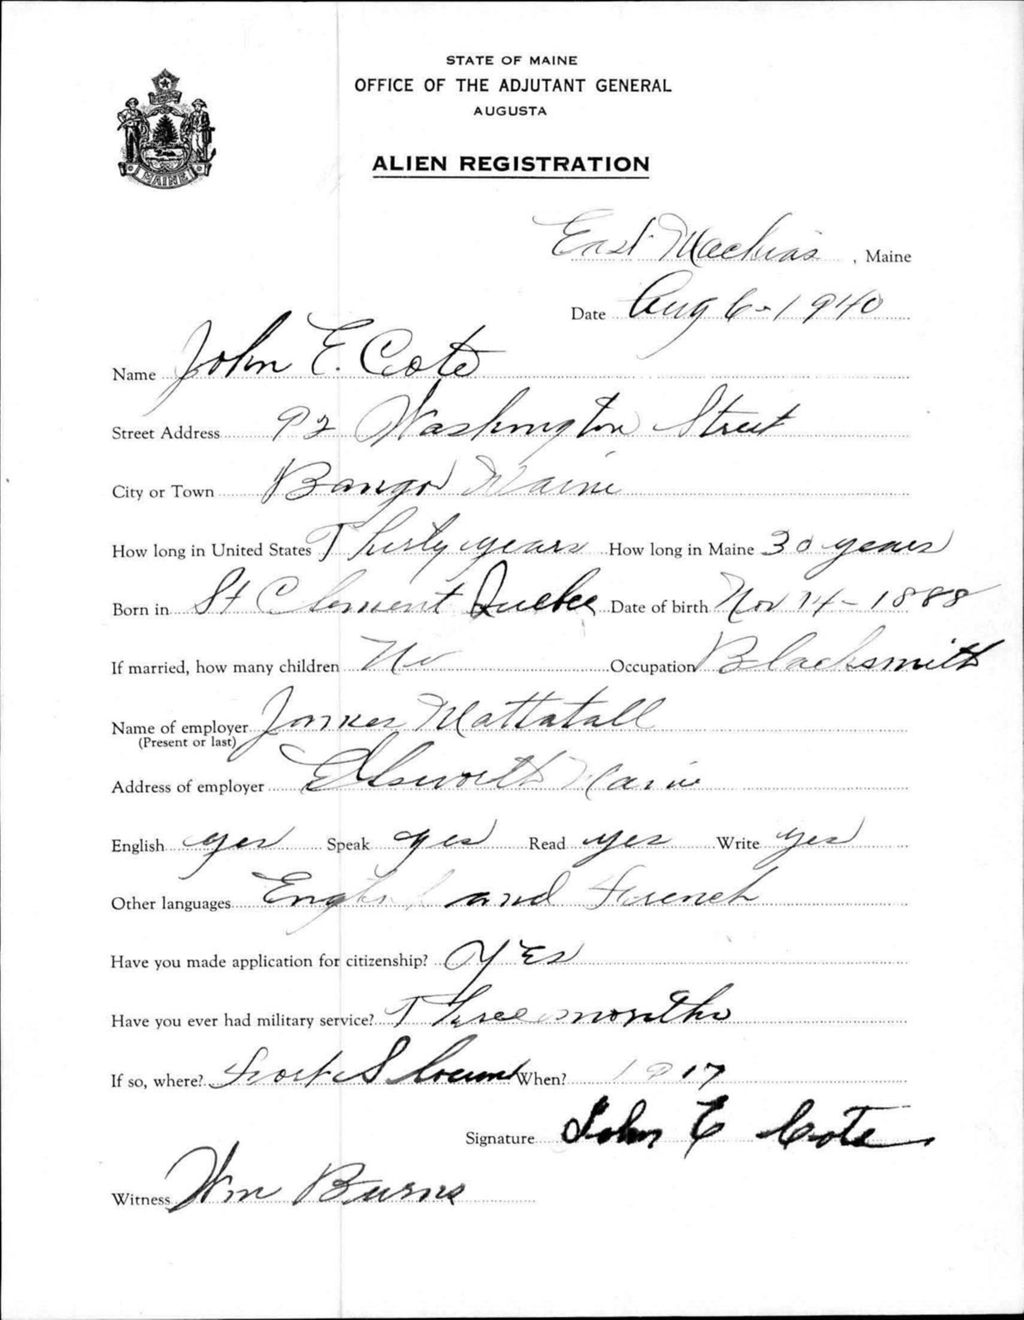 STATE OF MAINE
OFFICE OF THE ADJUTANT GENERAL
AUGUSTA
MAINE
ALIEN REGISTRATION
East Machias, Maine
Date Aug 6-1940
Name John E. Cote
Street Address 92 Washington Street
City or Town Bangor Maine
How long in United States Thirty years How long in Maine 30 years
Born in St Clement Quebec Date of birth Nov 14-1888
If married, how many children No Occupation Blacksmith
Name of employer James Mattatall
(Present or last)
Address of employer Ellsworth Maine
English yes Speak yes Read yes Write yes
Other languages English and French
Have you made application for citizenship? Yes
Have you ever had military service? Three months
If so, where? Fort Slocum When? 1917
Signature John E Cote
Witness Wm Burns